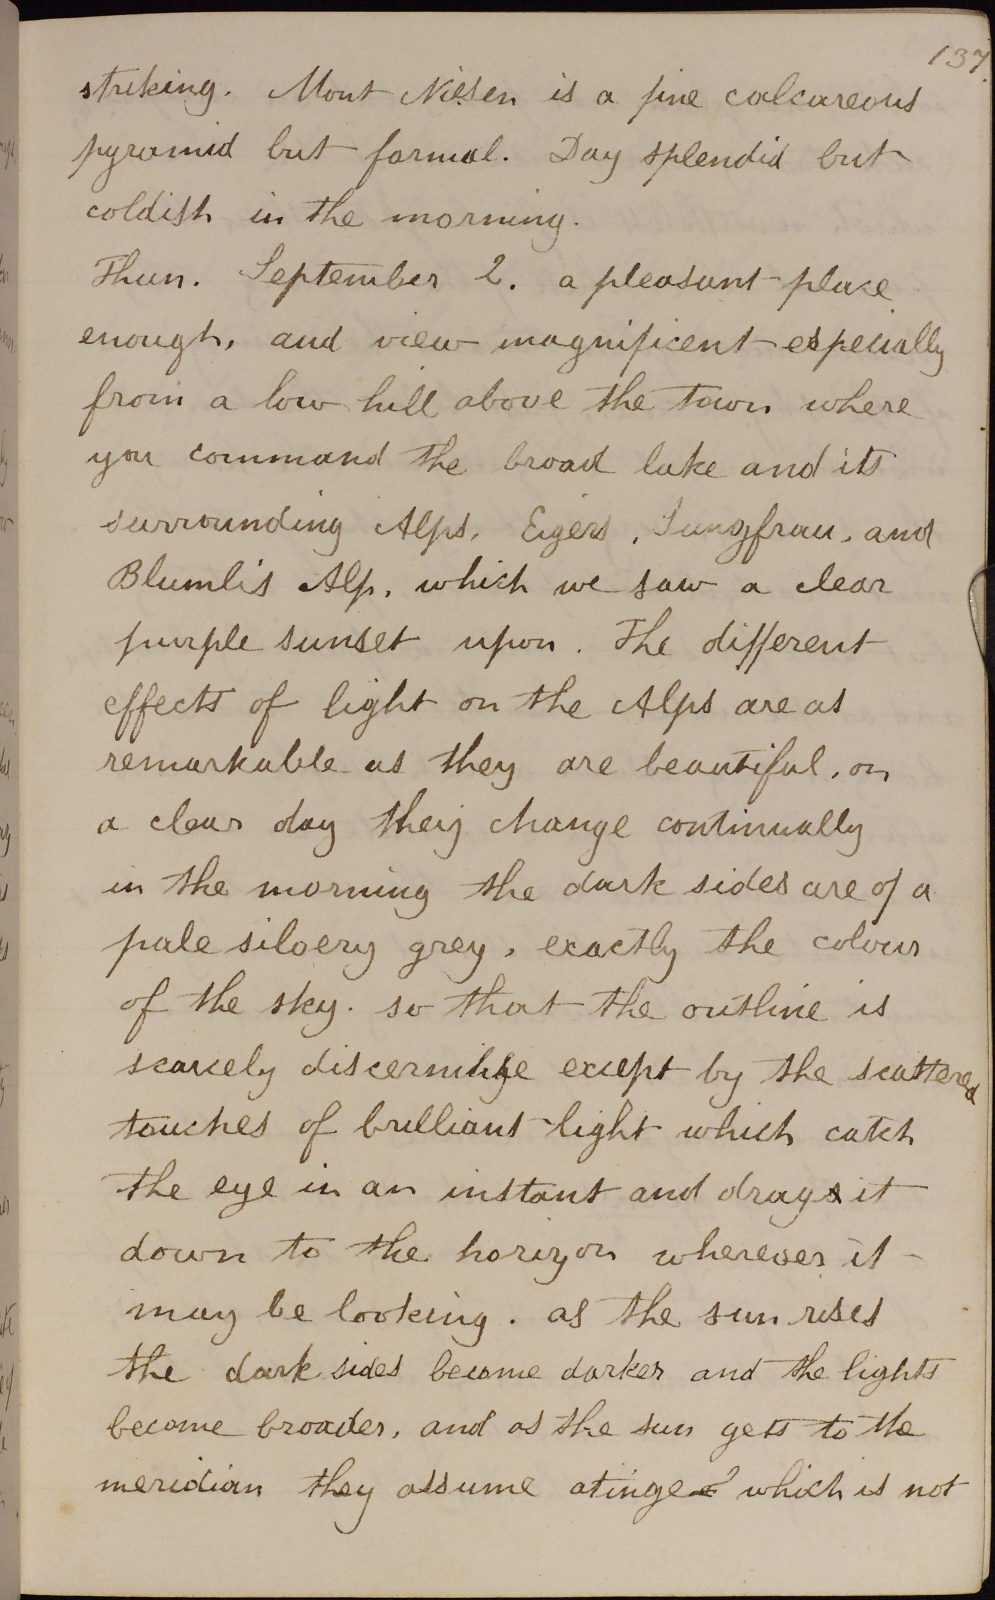 137.
striking. Mont Niesen is a fine calcareous
pyramid but formal. Day splendid but
coldish in the morning.
Thun. September 2. a pleasant place
enough, and view magnificent especially
from a low hill above the town where
you command the broad lake and its
surrounding Alps, Eigers, Jungfrau, and
Blumlis Alp, which we saw a clear
purple sunset upon. The different
effects of light on the Alps are as
remarkable as they are beautiful, on
a clear day they change continually
in the morning the dark sides are of a
pale silvery grey, exactly the colour
of the sky. so that the outline is
scarcely discernible except by the scattered
touches of brilliant light which catch
the eye in an instant and drags it
down to the horizon wherever it
may be looking. as the sun rises
the dark sides become darker and the lights
become broader, and as the sun gets to the
meridian they assume a tinge which is not